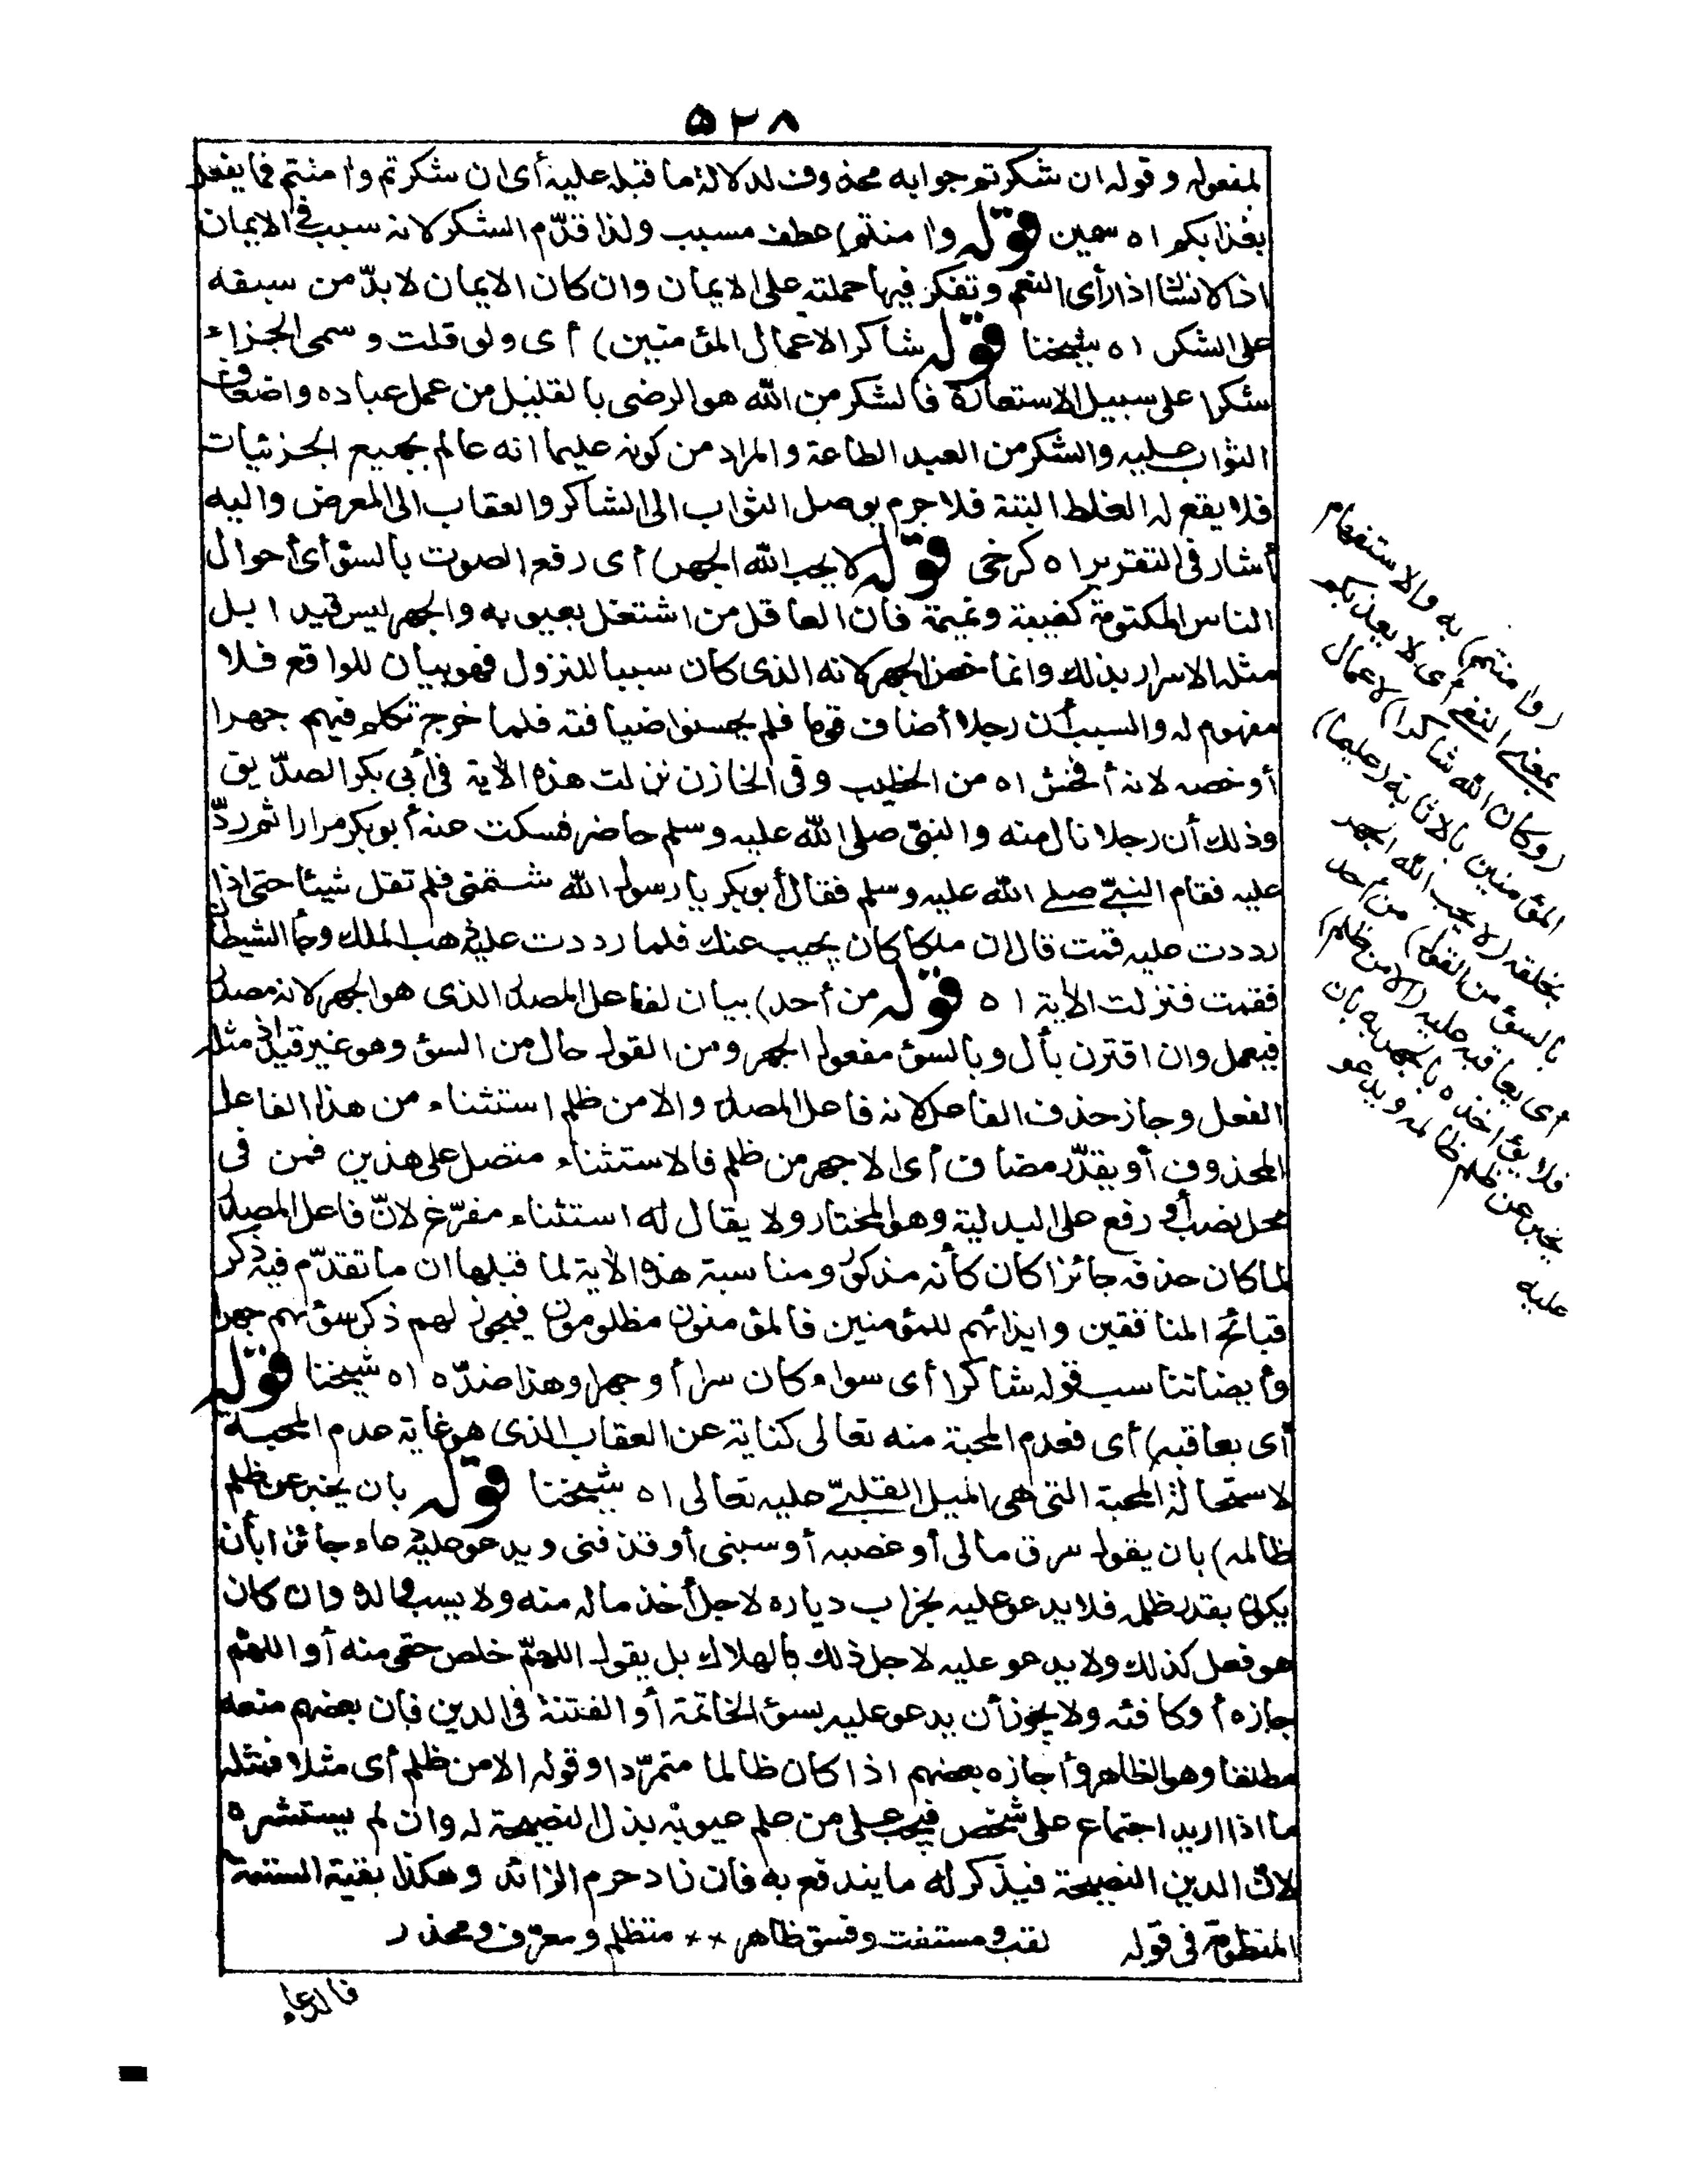 ٥٢٨
لمفعوله وقوله ان شكرتم جوابه محذوف لدلالة ما قبله عليه أى ان شكرتم وامنتم فما يفعل
بعذابكم اه سمين قوله وامنتم) عطف مسبب ولذا قدّم الشكر لانه سبب فى الايمان
اذ الانسان اذا رأى النعم وتفكر فيها حملته على الايمان وان كان الايمان لا بدّ من سبقه
على الشكر اه شيخنا قوله شاكرا لاعمال المؤمنين) أى ولو قلت وسمى الجزاء
شكرا على سبيل الاستعارة فالشكر من الله هو الرضى بالقليل من عمل عباده واضعاف
الثواب عليه والشكر من العبد الطاعة والمراد من كونه عليما انه عالم بجميع الجزئيات
فلا يقع له الغلط البتة فلا جرم يوصل الثواب الى الشاكر والعقاب الى المعرض واليه
أشار فى التقرير اه كرخى قوله لا يحب الله الجهر) أى رفع الصوت بالسوء أى أحوال
الناس المكتومة كغيبة ونميمة فان العاقل من اشتغل بعيوبه والجهر ليس قيدا بل
مثله الاسرار بذلك وانما خص الجهر لانه الذى كان سببا للنزول فهو بيان للواقع فلا
مفهوم له والسبب أن رجلا أضاف قوما فلم يحسنوا ضيافته فلما خرج تكلم فيهم جهرا
أو خصه لانه أفحش اه من الخطيب وفى الخازن نزلت هذه الآية فى أبى بكر الصدّيق
وذلك أن رجلا نال منه والنبى صلى الله عليه وسلم حاضر فسكت عنه أبو بكر مرارا ثم ردّ
عليه فقام النبىّ صلى الله عليه وسلم فقال أبو بكر يا رسول الله شتمنى فلم تقل شيئا حتى اذا
رددت عليه قمت قال ان ملكا كان يجيب عنك فلما رددت عليه ذهب الملك وجاء الشيطان
فقمت فنزلت الآية اه قوله من أحد) بيان لفاعل المصدر الذى هو الجهر لانه مصدر
فيعمل وان اقترن بأل وبالسوء مفعول الجهر ومن القول حال من السوء وهو غير قيد اذ مثله
الفعل وجاز حذف الفاعل لانه فاعل المصدر والا من ظلم استثناء من هذا الفاعل
المحذوف أو يقدّر مضاف أى الا جهر من ظلم فالاستثناء متصل على هذين فمن فى
محل نصب أو رفع على البدلية وهو المختار ولا يقال له استثناء مفرّغ لانّ فاعل المصدر
لما كان حذفه جائزا كان كأنه مذكور ومناسبة هذه الآية لما قبلها ان ما تقدّم فيه ذكر
قبائح المنافقين وايذائهم للمؤمنين فالمؤمنون مظلومون فيجوز لهم ذكر سوئهم جهرا
وأيضا تناسب قوله شاكرا أى سواء كان سرا أو جهرا وهذا ضدّه اه شيخنا قوله
أى يعاقبه) أى فعدم المحبة منه تعالى كناية عن العقاب الذى هو غاية عدم المحبة
لاستحالة المحبة التى هى الميل القلبىّ عليه تعالى اه شيخنا قوله بان يخبر عن ظلم
ظالمه) بان يقول سرق مالى أو غصبه أو سبنى أو قذفنى ويدعو عليه دعاء جائزا بأن
يكون بقدر ظلمه فلا يدعو عليه بخراب دياره لاجل أخذ ماله منه ولا يسب والده وان كان
هو فعل كذلك ولا يدعو عليه لاجل ذلك بالهلاك بل يقول اللهمّ خلص حقى منه أو اللهمّ
جازه أو كافئه ولا يجوز أن يدعو عليه بسوء الخاتمة أو الفتنة فى الدين فان بعضهم منعه
مطلقا وهو الظاهر وأجازه بعضهم اذا كان ظالما متمرّدا وقوله الا من ظلم أى مثلا فمثله
ما اذا اريد اجتماع على شخص فيجب على من علم عيوبه بذل النصيحة له وان لم يستشره
لانّ الدين النصيحة فيذكر له ما يندفع به فان زاد حرم الزائد وهكذا بقية الستة
المنظومة فى قوله لقب ومستفت وفسق ظاهر ×× متظلم ومعرّف ومحذر
فالدعاء
(وامنتم) به والاستفهام
بمعنى النفى أى لا يعذبكم
(وكان الله شاكرا) لاعمال
المؤمنين بالاثابة (عليما)
بخلقه (لا يحب الله الجهر
بالسوء من القول) من أحد
أى يعاقبه عليه (الا من ظلم)
فلا يؤاخذه بالجهر به بان
يخبر عن ظلم ظالمه ويدعو
عليه